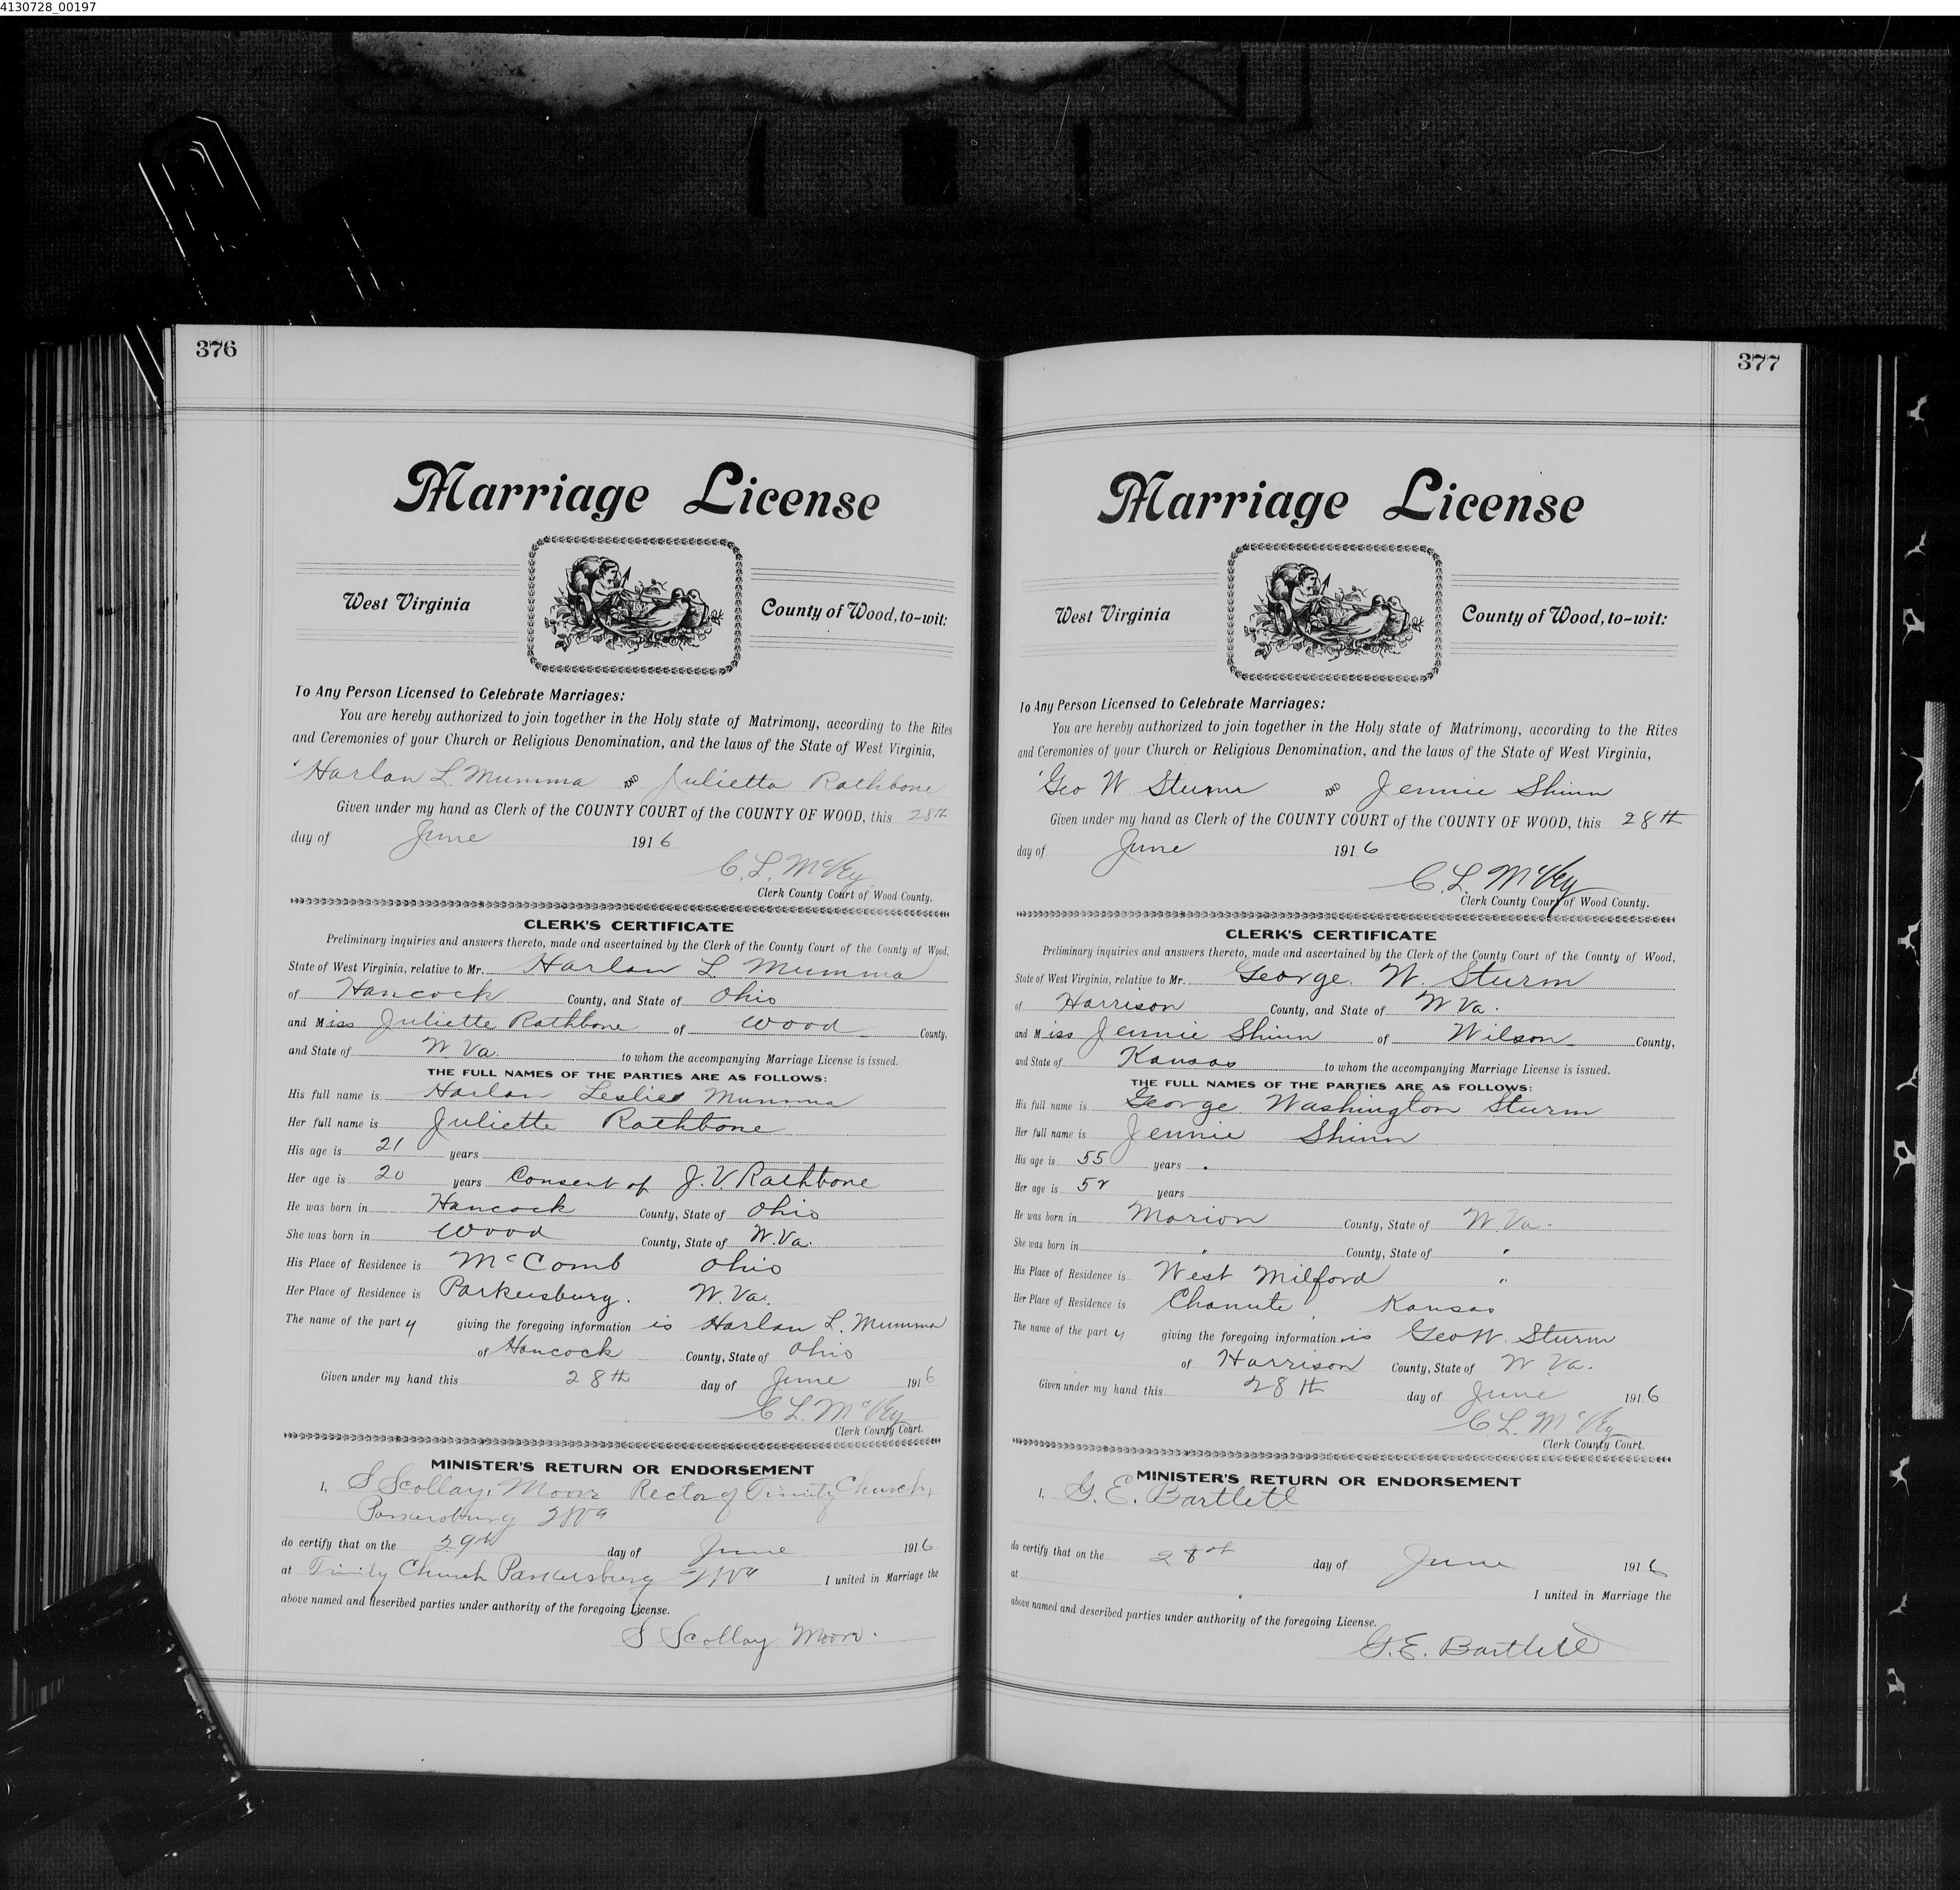 4130728_00197
376
Marriage License
West Virginia
County of Wood, to-wit:
To Any Person Licensed to Celebrate Marriages:
You are hereby authorized to join together in the Holy state of Matrimony, according to the Rites
and Ceremonies of your Church or Religious Denomination, and the laws of the State of West Virginia,
Harlan L. Mumma AND Julietta Rathbone
Given under my hand as Clerk of the COUNTY COURT of the COUNTY OF WOOD, this 28th
day of June 1916
C. L. McVey
Clerk County Court of Wood County.
CLERK'S CERTIFICATE
Preliminary inquiries and answers thereto, made and ascertained by the Clerk of the County Court of the County of Wood,
State of West Virginia, relative to Mr. Harlan L Mumma
of Hancock County, and State of Ohio
and Miss Juliette Rathbone of Wood County,
and State of W Va. to whom the accompanying Marriage License is issued.
THE FULL NAMES OF THE PARTIES ARE AS FOLLOWS:
His full name is Harlan Leslie Mumma
Her full name is Juliette Rathbone
His age is 21 years
Her age is 20 years Consent of J. V. Rathbone
He was born in Hancock County, State of Ohio
She was born in Wood County, State of W. Va.
His Place of Residence is McComb Ohio
Her Place of Residence is Parkersburg. W. Va.
The name of the party giving the foregoing information is Harlan L. Mumma
of Hancock County, State of Ohio
Given under my hand this 28th day of June 1916
C L. McVey
Clerk County Court.
MINISTER'S RETURN OR ENDORSEMENT
I, S Scollay Moore Rector of Trinity Church,
Parkersburg WVa
do certify that on the 29th day of June 1916
at Trinity Church Parkersburg WVa I united in Marriage the
above named and described parties under authority of the foregoing License.
S Scollay Moore.
377
Marriage License
West Virginia
County of Wood, to-wit:
To Any Person Licensed to Celebrate Marriages:
You are hereby authorized to join together in the Holy state of Matrimony, according to the Rites
and Ceremonies of your Church or Religious Denomination, and the laws of the State of West Virginia,
Geo W. Sturm AND Jennie Shinn
Given under my hand as Clerk of the COUNTY COURT of the COUNTY OF WOOD, this 28th
day of June 1916
C. L. McVey
Clerk County Court of Wood County.
CLERK'S CERTIFICATE
Preliminary inquiries and answers thereto, made and ascertained by the Clerk of the County Court of the County of Wood,
State of West Virginia, relative to Mr. George. W. Sturm
of Harrison County, and State of W Va.
and Miss Jennie Shinn of Wilson County,
and State of Kansas to whom the accompanying Marriage License is issued.
THE FULL NAMES OF THE PARTIES ARE AS FOLLOWS:
His full name is George Washington Sturm
Her full name is Jennie Shinn
His age is 55 years
Her age is 52 years
He was born in Marion County, State of W. Va.
She was born in " County, State of "
His Place of Residence is West Milford "
Her Place of Residence is Chanute, Kansas
The name of the party giving the foregoing information is Geo W. Sturm
of Harrison County, State of W Va.
Given under my hand this 28th day of June 1916
C. L. McVey
Clerk County Court.
MINISTER'S RETURN OR ENDORSEMENT
I, G. E. Bartlett
do certify that on the 28th day of June 1916
at I united in Marriage the
above named and described parties under authority of the foregoing License.
G. E. Bartlett